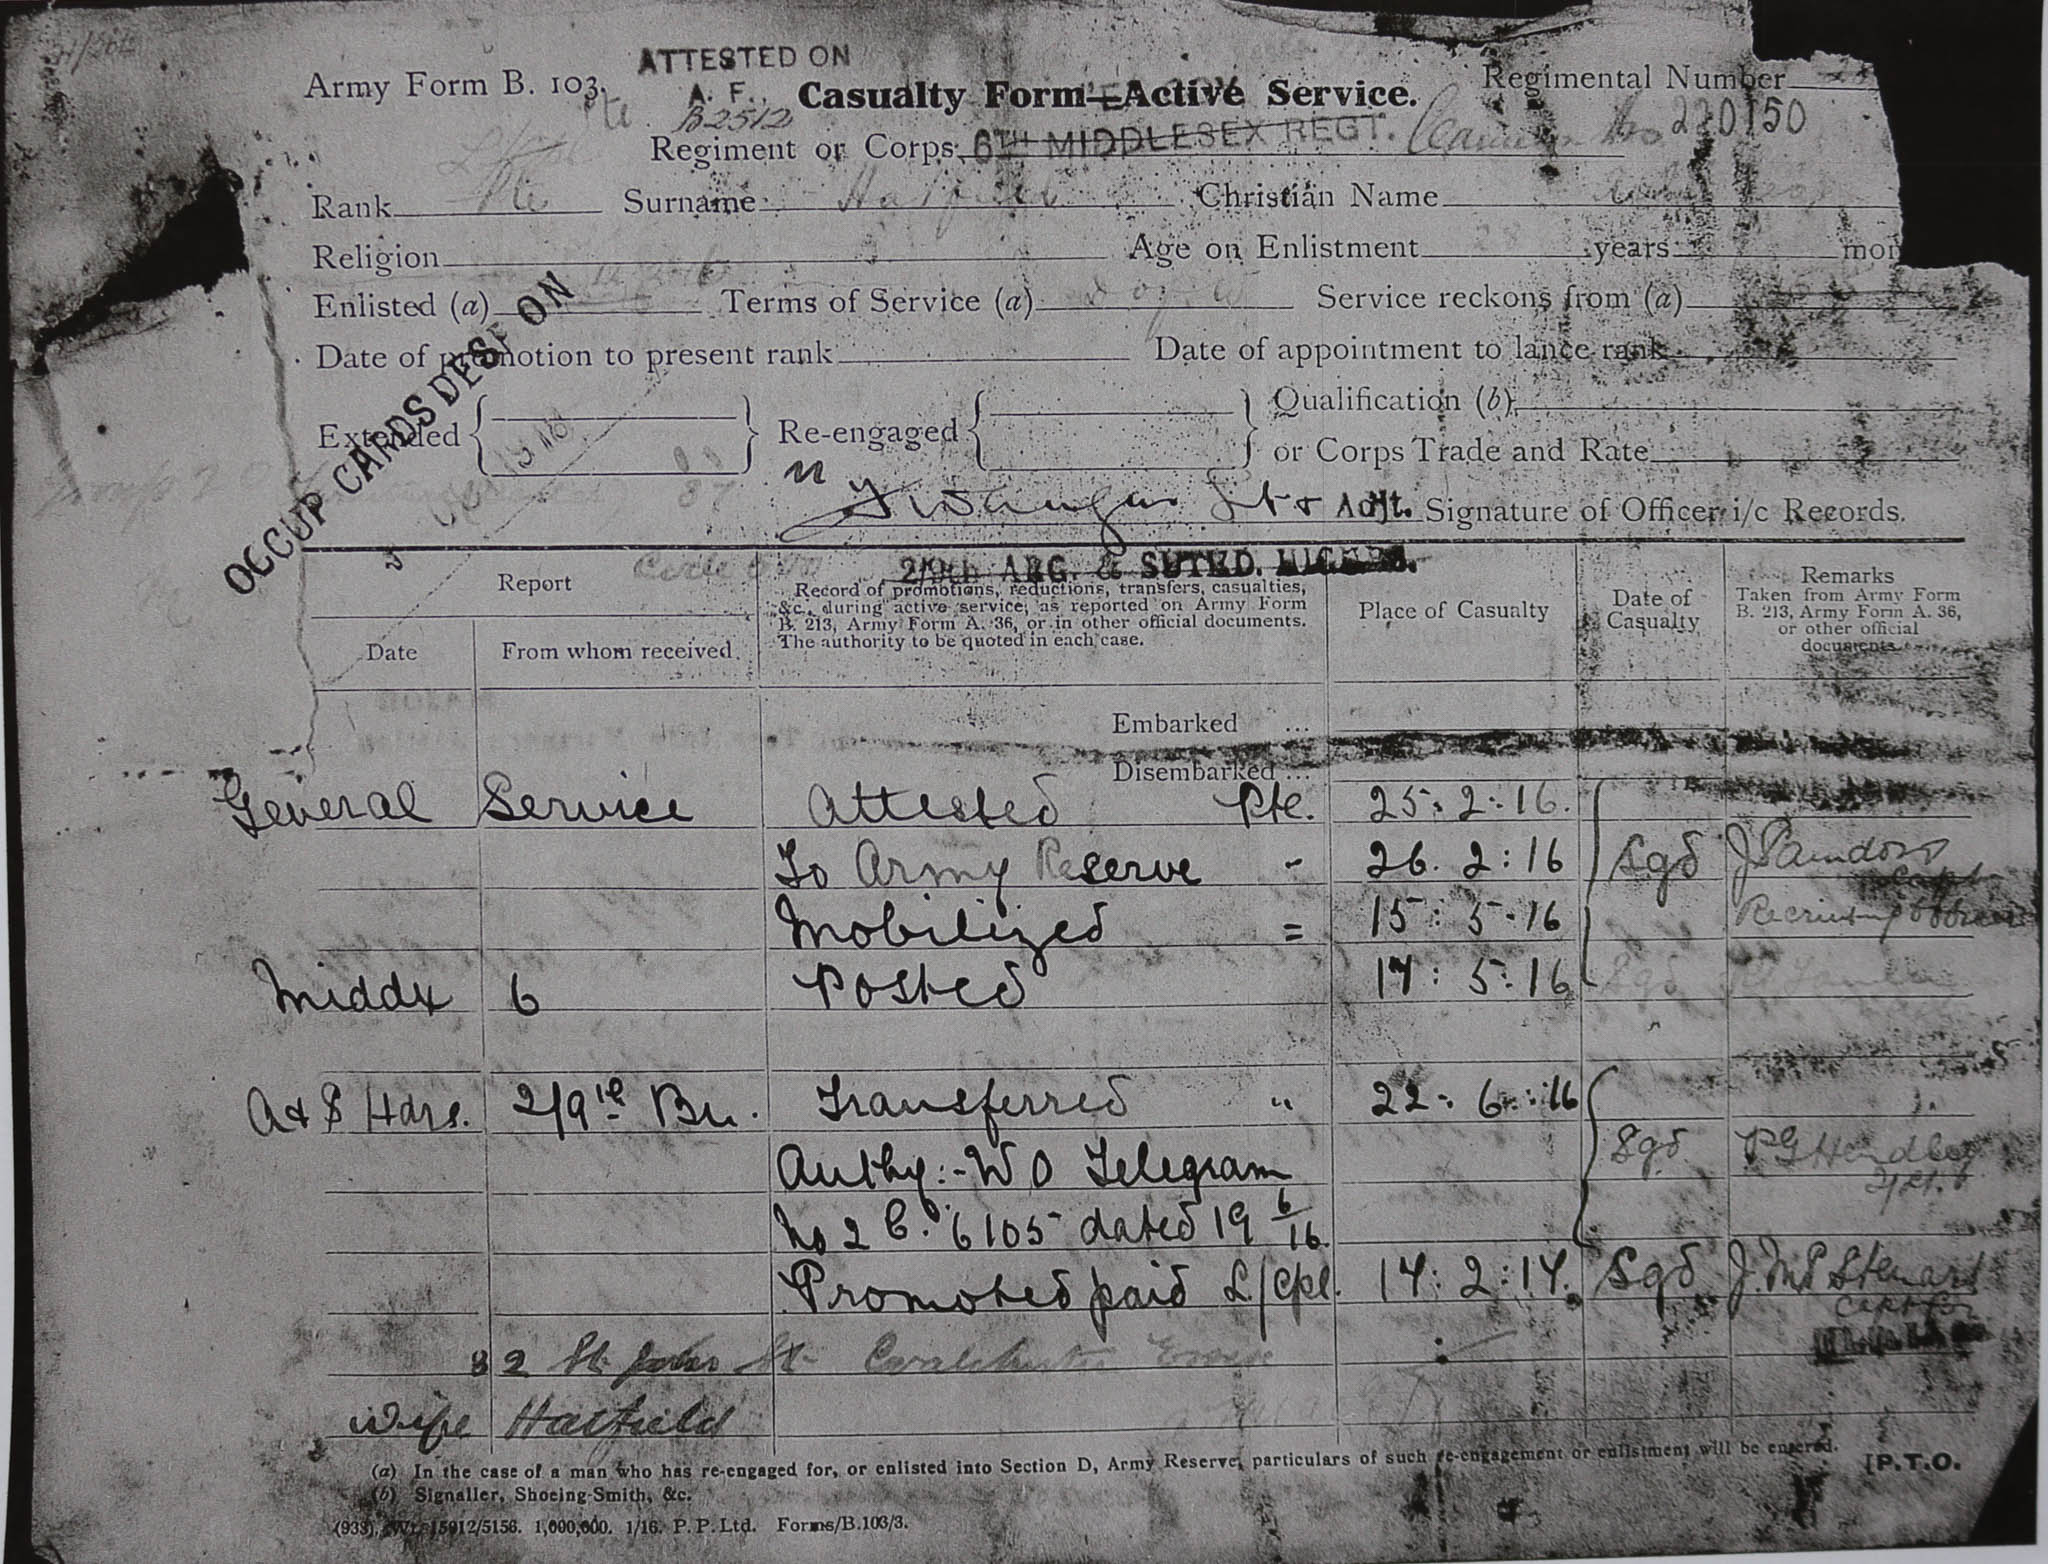 ATTESTED ON
Army Form B. 103. A. F. Casualty Form—Active Service. Regimental Number
Pte B2512 220150
Regiment or Corps 6TH MIDDLESEX REGT.
L/Cpl
Rank Pte Surname Hatfield Christian Name
Religion Age on Enlistment 28 years mon
Enlisted (a) Terms of Service (a) Service reckons from (a)
Date of promotion to present rank Date of appointment to lance rank
OCCUP CARDS DEST ON
Extended Re-engaged Qualification (b)
or Corps Trade and Rate
Lt & Adjt. Signature of Officer i/c Records.
2/9th ARG. & SUTHD. HIGHRS.
Report Record of promotions, reductions, transfers, casualties, &c., during active service, as reported on Army Form B. 213, Army Form A. 36, or in other official documents. The authority to be quoted in each case. Place of Casualty Date of Casualty Remarks Taken from Army Form B. 213, Army Form A. 36, or other official documents.
Date From whom received
Embarked ...
Disembarked ...
General Service Attested Pte. 25.2.16.
To Army Reserve " 26.2:16 Sgd Capt
Mobilized = 15:5.16 Recruiting Officer
Middx 6 Posted 17:5:16 Sgd
A & S Hdrs. 2/9th Bn. Transferred " 22.6.:16
Authy:- W O Telegram Sgd P G Hendley
No 2 6105 dated 19 6/16. 2/Lt.
Promoted paid L/Cpl. 17:2:17. Sgd J. McP Stewart
Capt for
82 St. John St. Colchester Essex
Wife Hatfield
(a) In the case of a man who has re-engaged for, or enlisted into Section D, Army Reserve, particulars of such re-engagement or enlistment will be entered. [P.T.O.
(b) Signaller, Shoeing-Smith, &c.
(933). Wt. 15912/5156. 1,000,000. 1/16. P. P. Ltd. Forms/B.103/3.